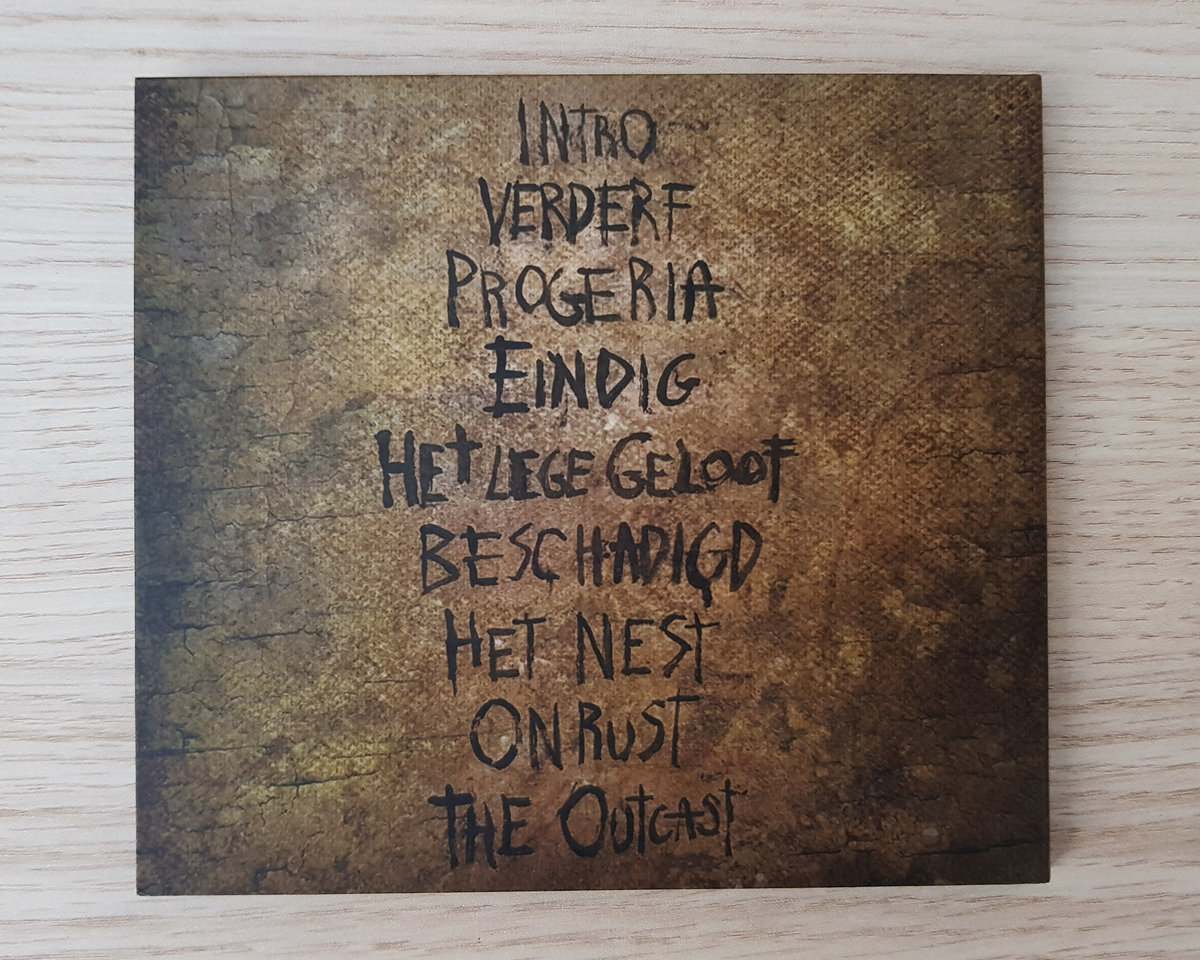 Intro
Verderf
Progeria
Eindig
Het Lege Geloof
Beschadigd
Het Nest
Onrust
The Outcast